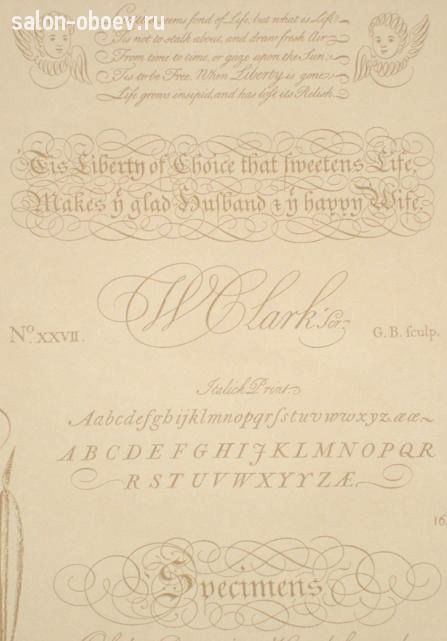 salon-oboev.ru
seems fond of Life, but what is Life?
'Tis not to stalk about, and draw fresh Air
From time to time, or gaze upon the Sun:
'Tis to be Free. When Liberty is gone,
Life grows insipid, and has lost its Relish.
'Tis Liberty of Choice that ſweetens Life,
Makes yͤ glad Huſband & yͤ happy Wife.
W Clark Scr.
No. XXVII.
G. B. ſculp.
Italick Print.
Aabcdefghijklmnopqrſstuvwwxyzææ
ABCDEFGHIJKLMNOPQR
RSTUVWXYYZÆ.
16
Specimens